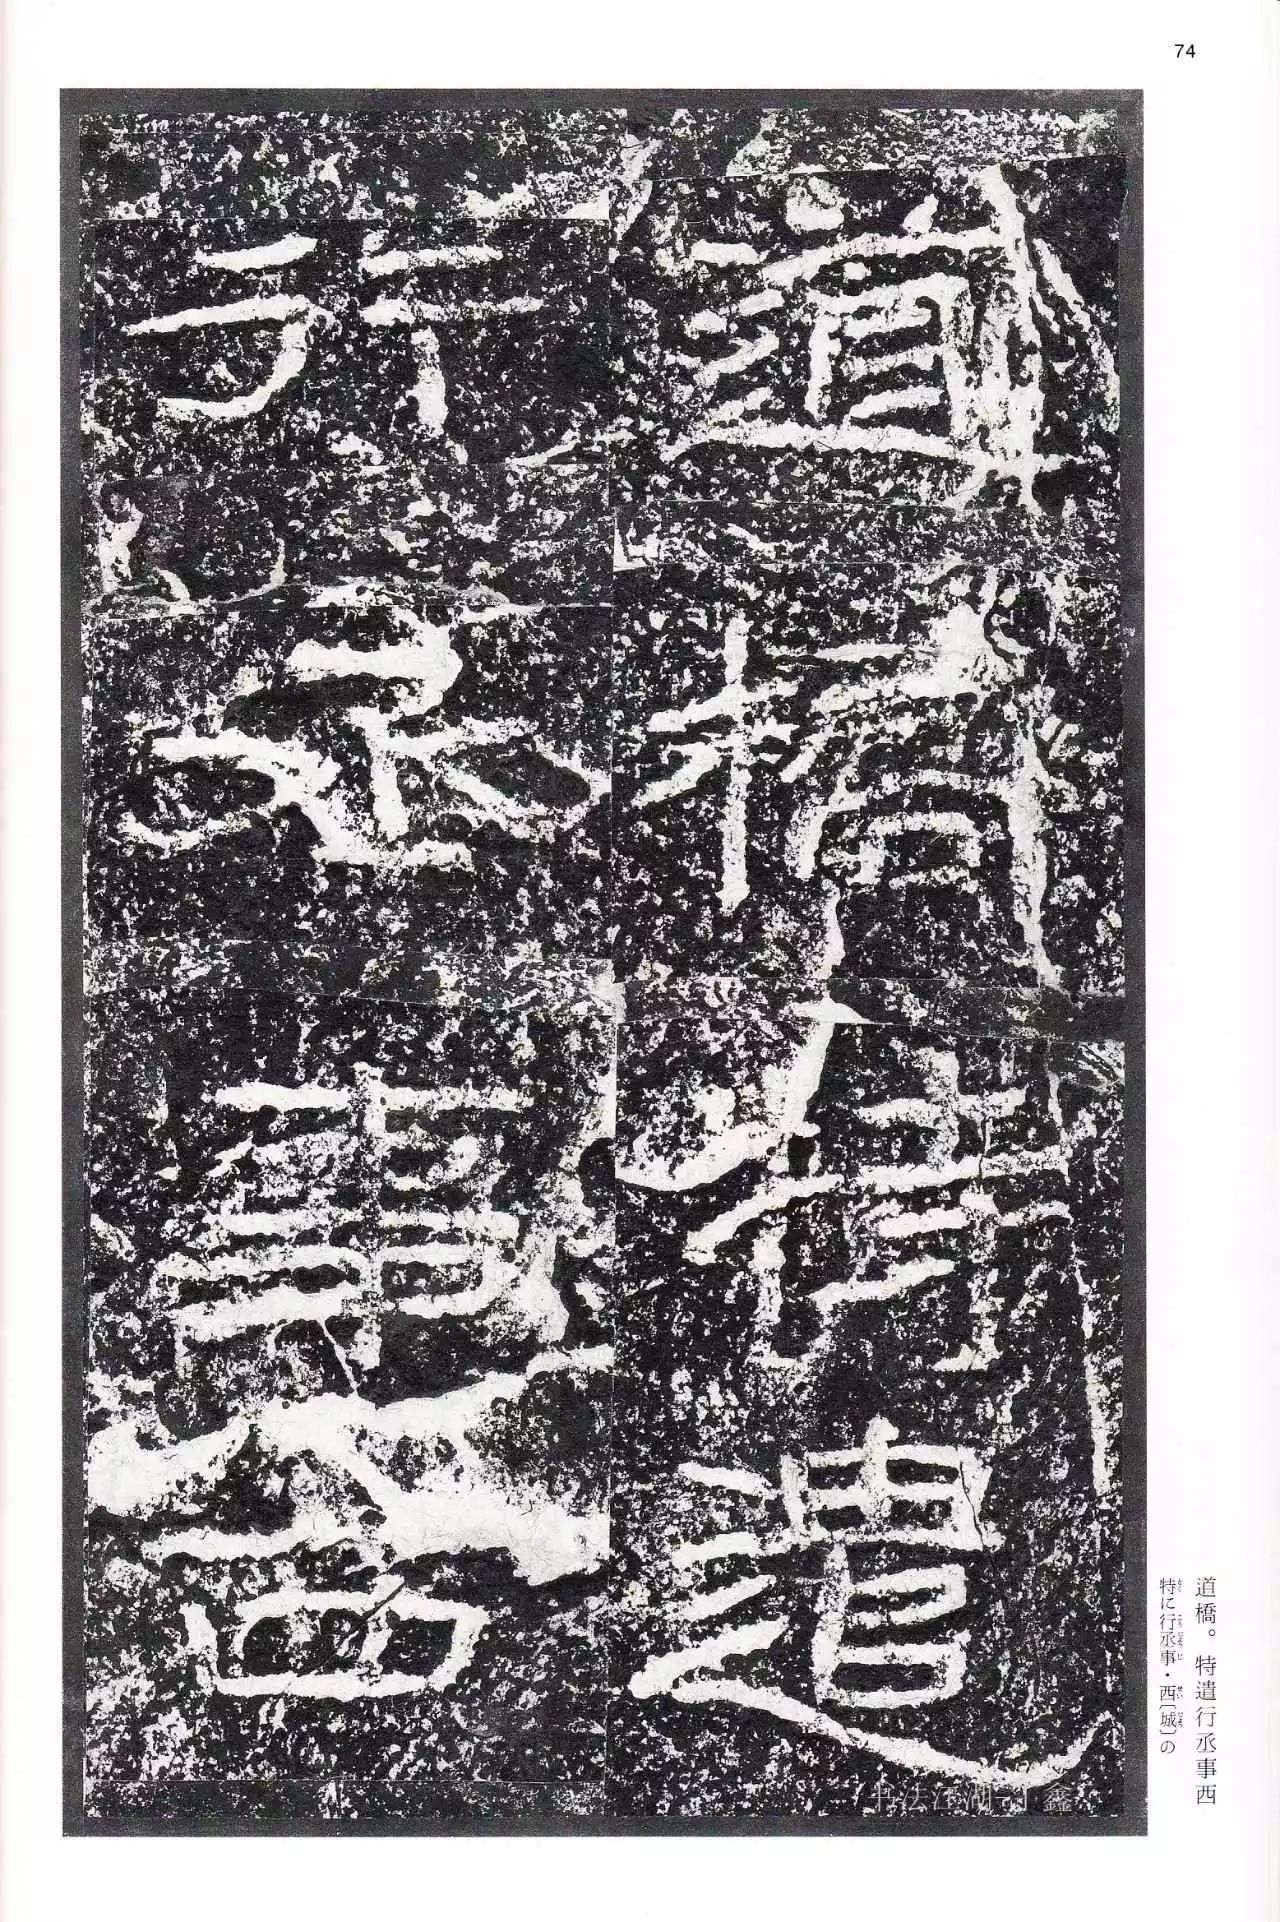 74
道橋特遣
行丞事西
道橋。特遣行丞事西
特に行丞事・西〔城〕の
书法江湖